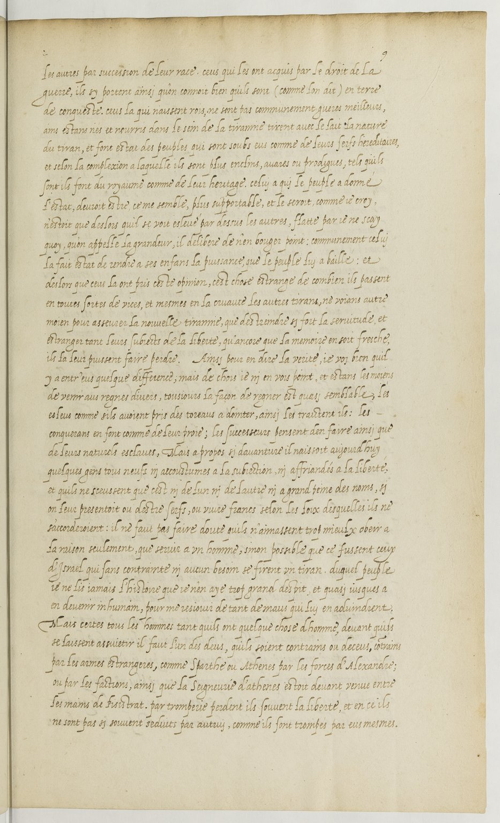 9
les autres par succession de leur race. ceus qui les ont acquis par le droit de la
guerre, ils sy portent ainsi quon connoit bien quils sont (comme lon dit) en terre
de conqueste. ceus la qui naissent rois, ne sont pas communement gueres meilleurs,
ains estans nes et nourris dans le sein de la tirannie tirent avec le lait la nature
du tiran, et font estat des peuples qui sont soubs eus comme de leurs serfs hereditaires,
et selon la complexion a laquelle ils sont plus enclins, avares ou prodigues, tels quils
sont ils font du royaume comme de leur heritage. celuy a qui le peuple a donné
l'estat, devroit estre ce me semble, plus supportable, et le seroit, comme ie croy,
n'estoit que deslors quil se voit eslevé par dessus les autres, flatté par ie ne scay
quoy, quon appelle la grandeur, il delibere de n'en bouger point; communement celuy
la fait estat de rendre a ses enfans la puissance, que le peuple luy a baillé: et
deslors que ceus la ont pris ceste opinion, c'est chose estrange de combien ils passent
en toutes sortes de vices, et mesmes en la cruauté les autres tirans, ne voians autre
moien pour asseurer la nouvelle tirannie, que d'estreindre si fort la servitude, et
estranger tant leurs subiects de la liberté, qu'ancore que la memoire en soit fresche,
ils la leur puissent faire perdre. Ainsi pour en dire la verité, ie voi bien quil
y a entr'eus quelque difference, mais de chois ie ni en vois point, et estans les moiens
de venir aus regnes divers, tousiours la façon de regner est quasi semblable, les
esleus comme s'ils avoient pris des toreaus a domter, ainsi les traictent ils: les
conquerans en font comme de leur proie; les successeurs pensent d'en faire ainsi que
de leurs naturels esclaves, Mais a propos si davanture il naissoit auiourd'huy
quelques gens tous neufs ni accoustumes a la subiection, ni affriandés a la liberté,
et quils ne sceussent que c'est ni de l'un ni de l'autre ni a grand peine des noms, si
on leur presentoit ou d'estre serfs, ou vivre francs selon les loix desquelles ils ne
saccorderoient: il ne faut pas faire doute quils n'aimassent trop mieulx obeir a
la raison seulement, que servir a un homme, sinon possible que ce fussent ceux
d'Israel qui sans contrainte ni aucun besoin se firent un tiran. duquel peuple
ie ne lis iamais l'histoire que ie n'en aye trop grand despit, et quasi iusques a
en devenir inhumain, pour me resiouir de tant de maus qui luy en advindrent,
Mais certes tous les hommes tant quils ont quelque chose d'homme, devant quils
se laissent asservietir il faut l'un des deus, quils soient contrains ou deceus, contrains
par les armes estrangeres, comme Sparthe ou Athenes par les forces d'Alexandre;
ou par les factions, ainsi que la Seigneurie d'athenes estoit devant venue entre
les mains de Pisistrat. par tromperie perdent ils souvent la liberté, et en ce ils
ne sont pas si souvent seduits par autruy, comme ils sont trompes par eus mesmes.